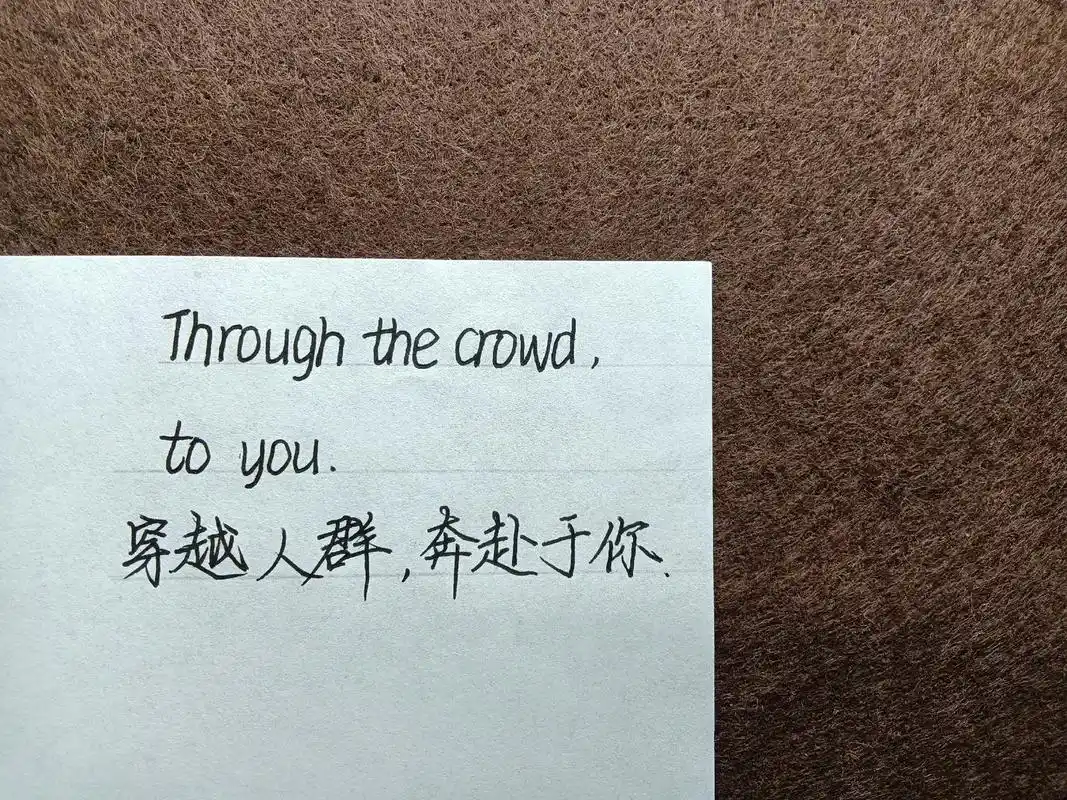 Through the crowd,
to you.
穿越人群,奔赴于你.